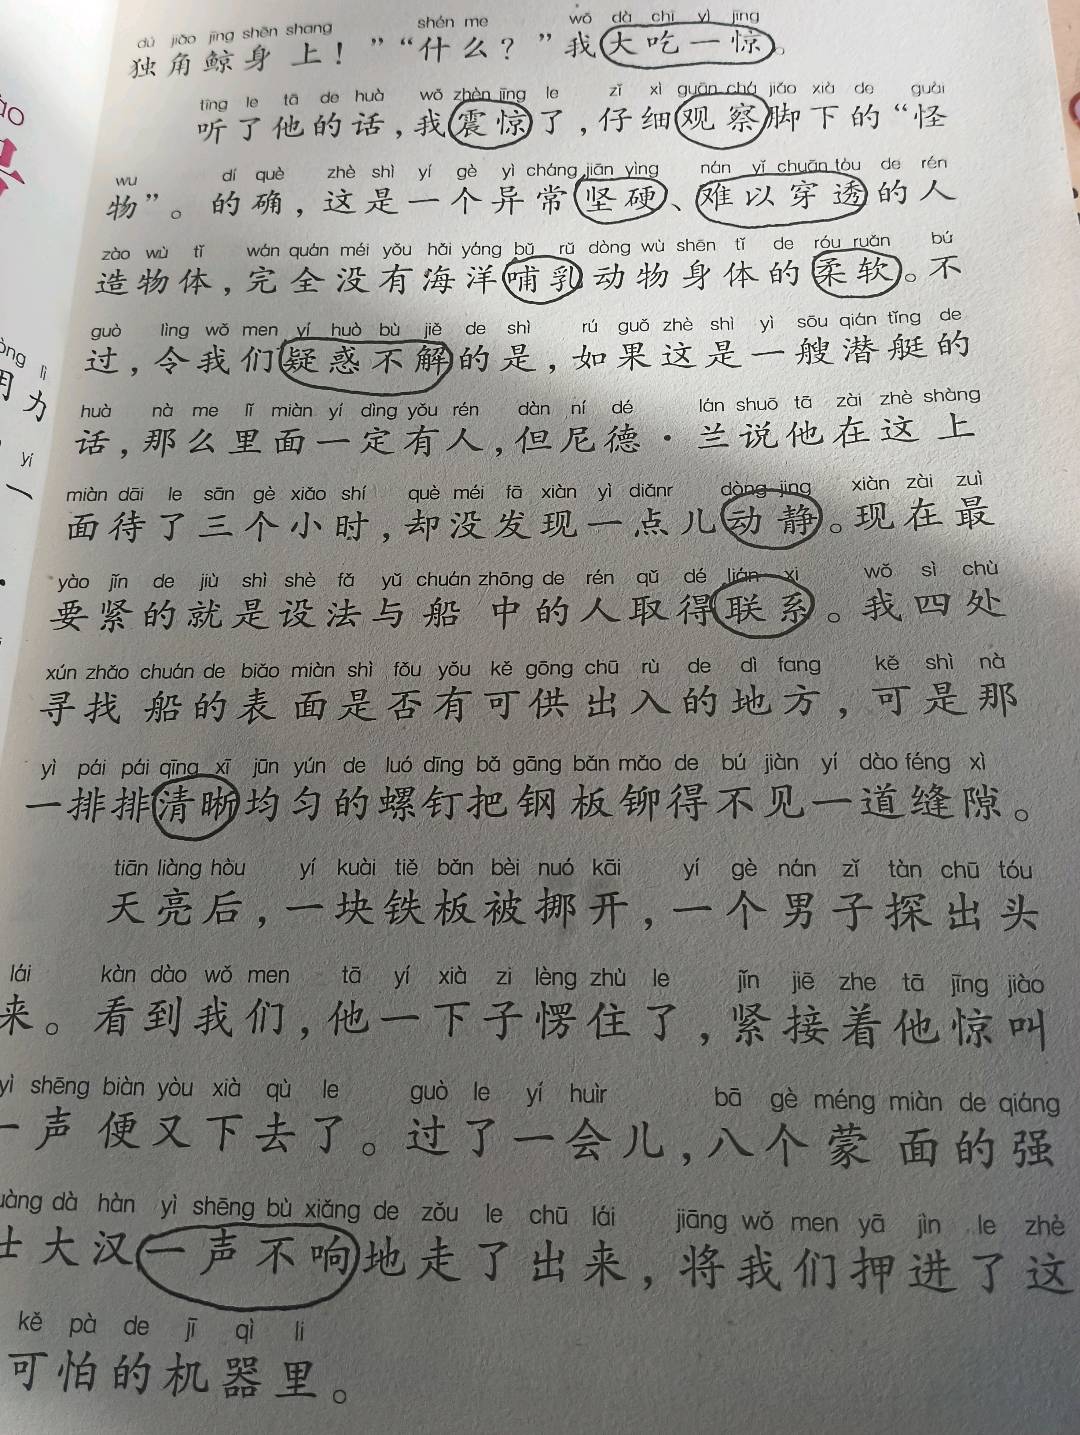 dú jiǎo jīng shēn shang shén me wǒ dà chī yì jīng
独角鲸身上！”“什么？”我大吃一惊。
tīng le tā de huà wǒ zhèn jīng le zǐ xì guān chá jiǎo xià de guài
听了他的话，我震惊了，仔细观察脚下的“怪
wu dí què zhè shì yí gè yì cháng jiān yìng nán yǐ chuān tòu de rén
物”。的确，这是一个异常坚硬、难以穿透的人
zào wù tǐ wán quán méi yǒu hǎi yáng bǔ rǔ dòng wù shēn tǐ de róu ruǎn bú
造物体，完全没有海洋哺乳动物身体的柔软。不
guò lìng wǒ men yí huò bù jiě de shì rú guǒ zhè shì yì sōu qián tǐng de
过，令我们疑惑不解的是，如果这是一艘潜艇的
huà nà me lǐ miàn yí dìng yǒu rén dàn ní dé lán shuō tā zài zhè shàng
话，那么里面一定有人，但尼德·兰说他在这上
miàn dāi le sān gè xiǎo shí què méi fā xiàn yì diǎnr dòng jing xiàn zài zuì
面待了三个小时，却没发现一点儿动静。现在最
yào jǐn de jiù shì shè fǎ yǔ chuán zhōng de rén qǔ dé lián xi wǒ sì chù
要紧的就是设法与船中的人取得联系。我四处
xún zhǎo chuán de biǎo miàn shì fǒu yǒu kě gōng chū rù de dì fang kě shì nà
寻找船的表面是否有可供出入的地方，可是那
yì pái pái qīng xī jūn yún de luó dīng bǎ gāng bǎn mǎo de bú jiàn yí dào féng xì
一排排清晰均匀的螺钉把钢板铆得不见一道缝隙。
tiān liàng hòu yí kuài tiě bǎn bèi nuó kāi yí gè nán zǐ tàn chū tóu
天亮后，一块铁板被挪开，一个男子探出头
lái kàn dào wǒ men tā yí xià zi lèng zhù le jǐn jiē zhe tā jīng jiào
来。看到我们，他一下子愣住了，紧接着他惊叫
yì shēng biàn yòu xià qù le guò le yí huìr bā gè méng miàn de qiáng
一声便又下去了。过了一会儿，八个蒙面的强
uàng dà hàn yì shēng bù xiǎng de zǒu le chū lái jiāng wǒ men yā jìn le zhè
壮大汉一声不响地走了出来，将我们押进了这
kě pà de jī qì li
可怕的机器里。